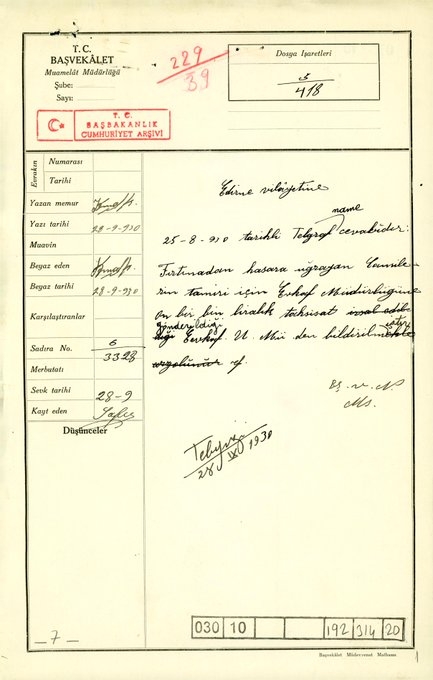 T. C.
BAŞVEKÂLET
Muamelât Müdürlüğü
Şube:
Sayı:
229
39
Dosya İşaretleri
5
418
T. C.
BAŞBAKANLIK
CUMHURİYET ARŞİVİ
Evrakın
Numarası
Tarihi
Yazan memur
Yazı tarihi 28-9-930
Muavin
Beyaz eden
Beyaz tarihi 28-9-930
Karşılaştıranlar
Sadıra No. 6
3328
Merbutatı
Sevk tarihi 28-9
Kayt eden
Düşünceler
Edirne vilâyetine
name
25-8-930 tarihli Telgraf cevabıdır:
Fırtınadan hasara uğrayan Camile-
rin tamiri için Evkaf Müdürlüğüne
on bir bin liralık tahsisat
gönderildiği
Evkaf U. Mü den bildirilmektedir
ef.
Tebyiz
28 IX 1930
— 7 —
030 10 192 314 20
Başvekâlet Müdevvenat Matbaası